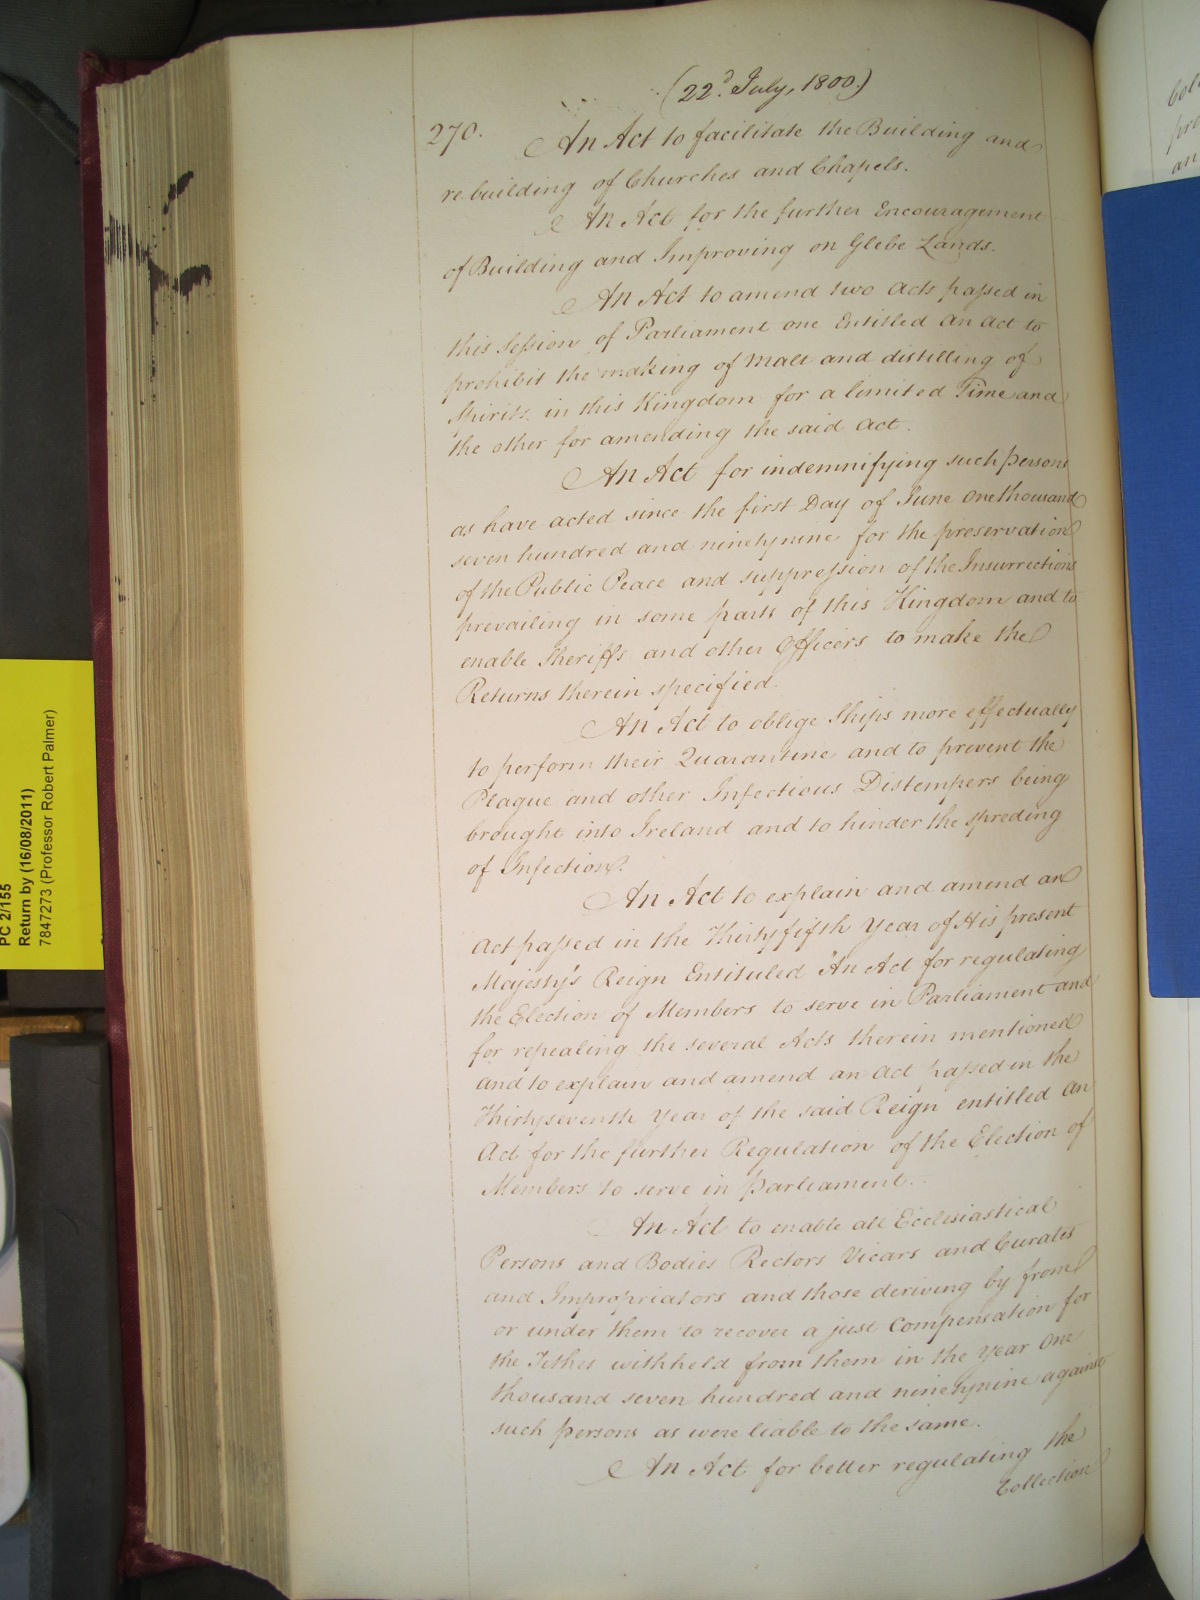 (22.d July, 1800.)
270.
An Act to facilitate the Building and
re building of Churches and Chapels.
An Act for the further Encouragement
of Building and Improving on Glebe Lands.
An Act to amend two Acts passed in
this Session of Parliament one Entitled an Act to
prohibit the making of Malt and distilling of
Spirits in this Kingdom for a limited Time and
the other for amending the said Act.
An Act for indemnifying such persons
as have acted since the first Day of June One thousand
seven hundred and ninetynine for the preservation
of the Public Peace and suppression of the Insurrections
prevailing in some parts of this Kingdom and to
enable Sheriffs and other Officers to make the
Returns therein specified.
An Act to oblige Ships more effectually
to perform their Quarantine and to prevent the
Plague and other Infectious Distempers being
brought into Ireland and to hinder the spreding
of Infection.
An Act to explain and amend an
Act passed in the Thirtyfifth Year of His present
Majesty's Reign Entituled An Act for regulating
the Election of Members to serve in Parliament and
for repealing the several Acts therein mentioned
and to explain and amend an Act passed in the
Thirtyseventh Year of the said Reign entitled An
Act for the further Regulation of the Election of
Members to serve in Parliament.
An Act to enable all Ecclesiastical
Persons and Bodies Rectors Vicars and Curates
and Impropriators and those deriving by from
or under them to recover a just Compensation for
the Tithes withheld from them in the Year One
thousand seven hundred and ninetynine against
such persons as were liable to the same.
An Act for better regulating the
Collection
PC 2/155
Return by (16/08/2011)
7847273 (Professor Robert Palmer)